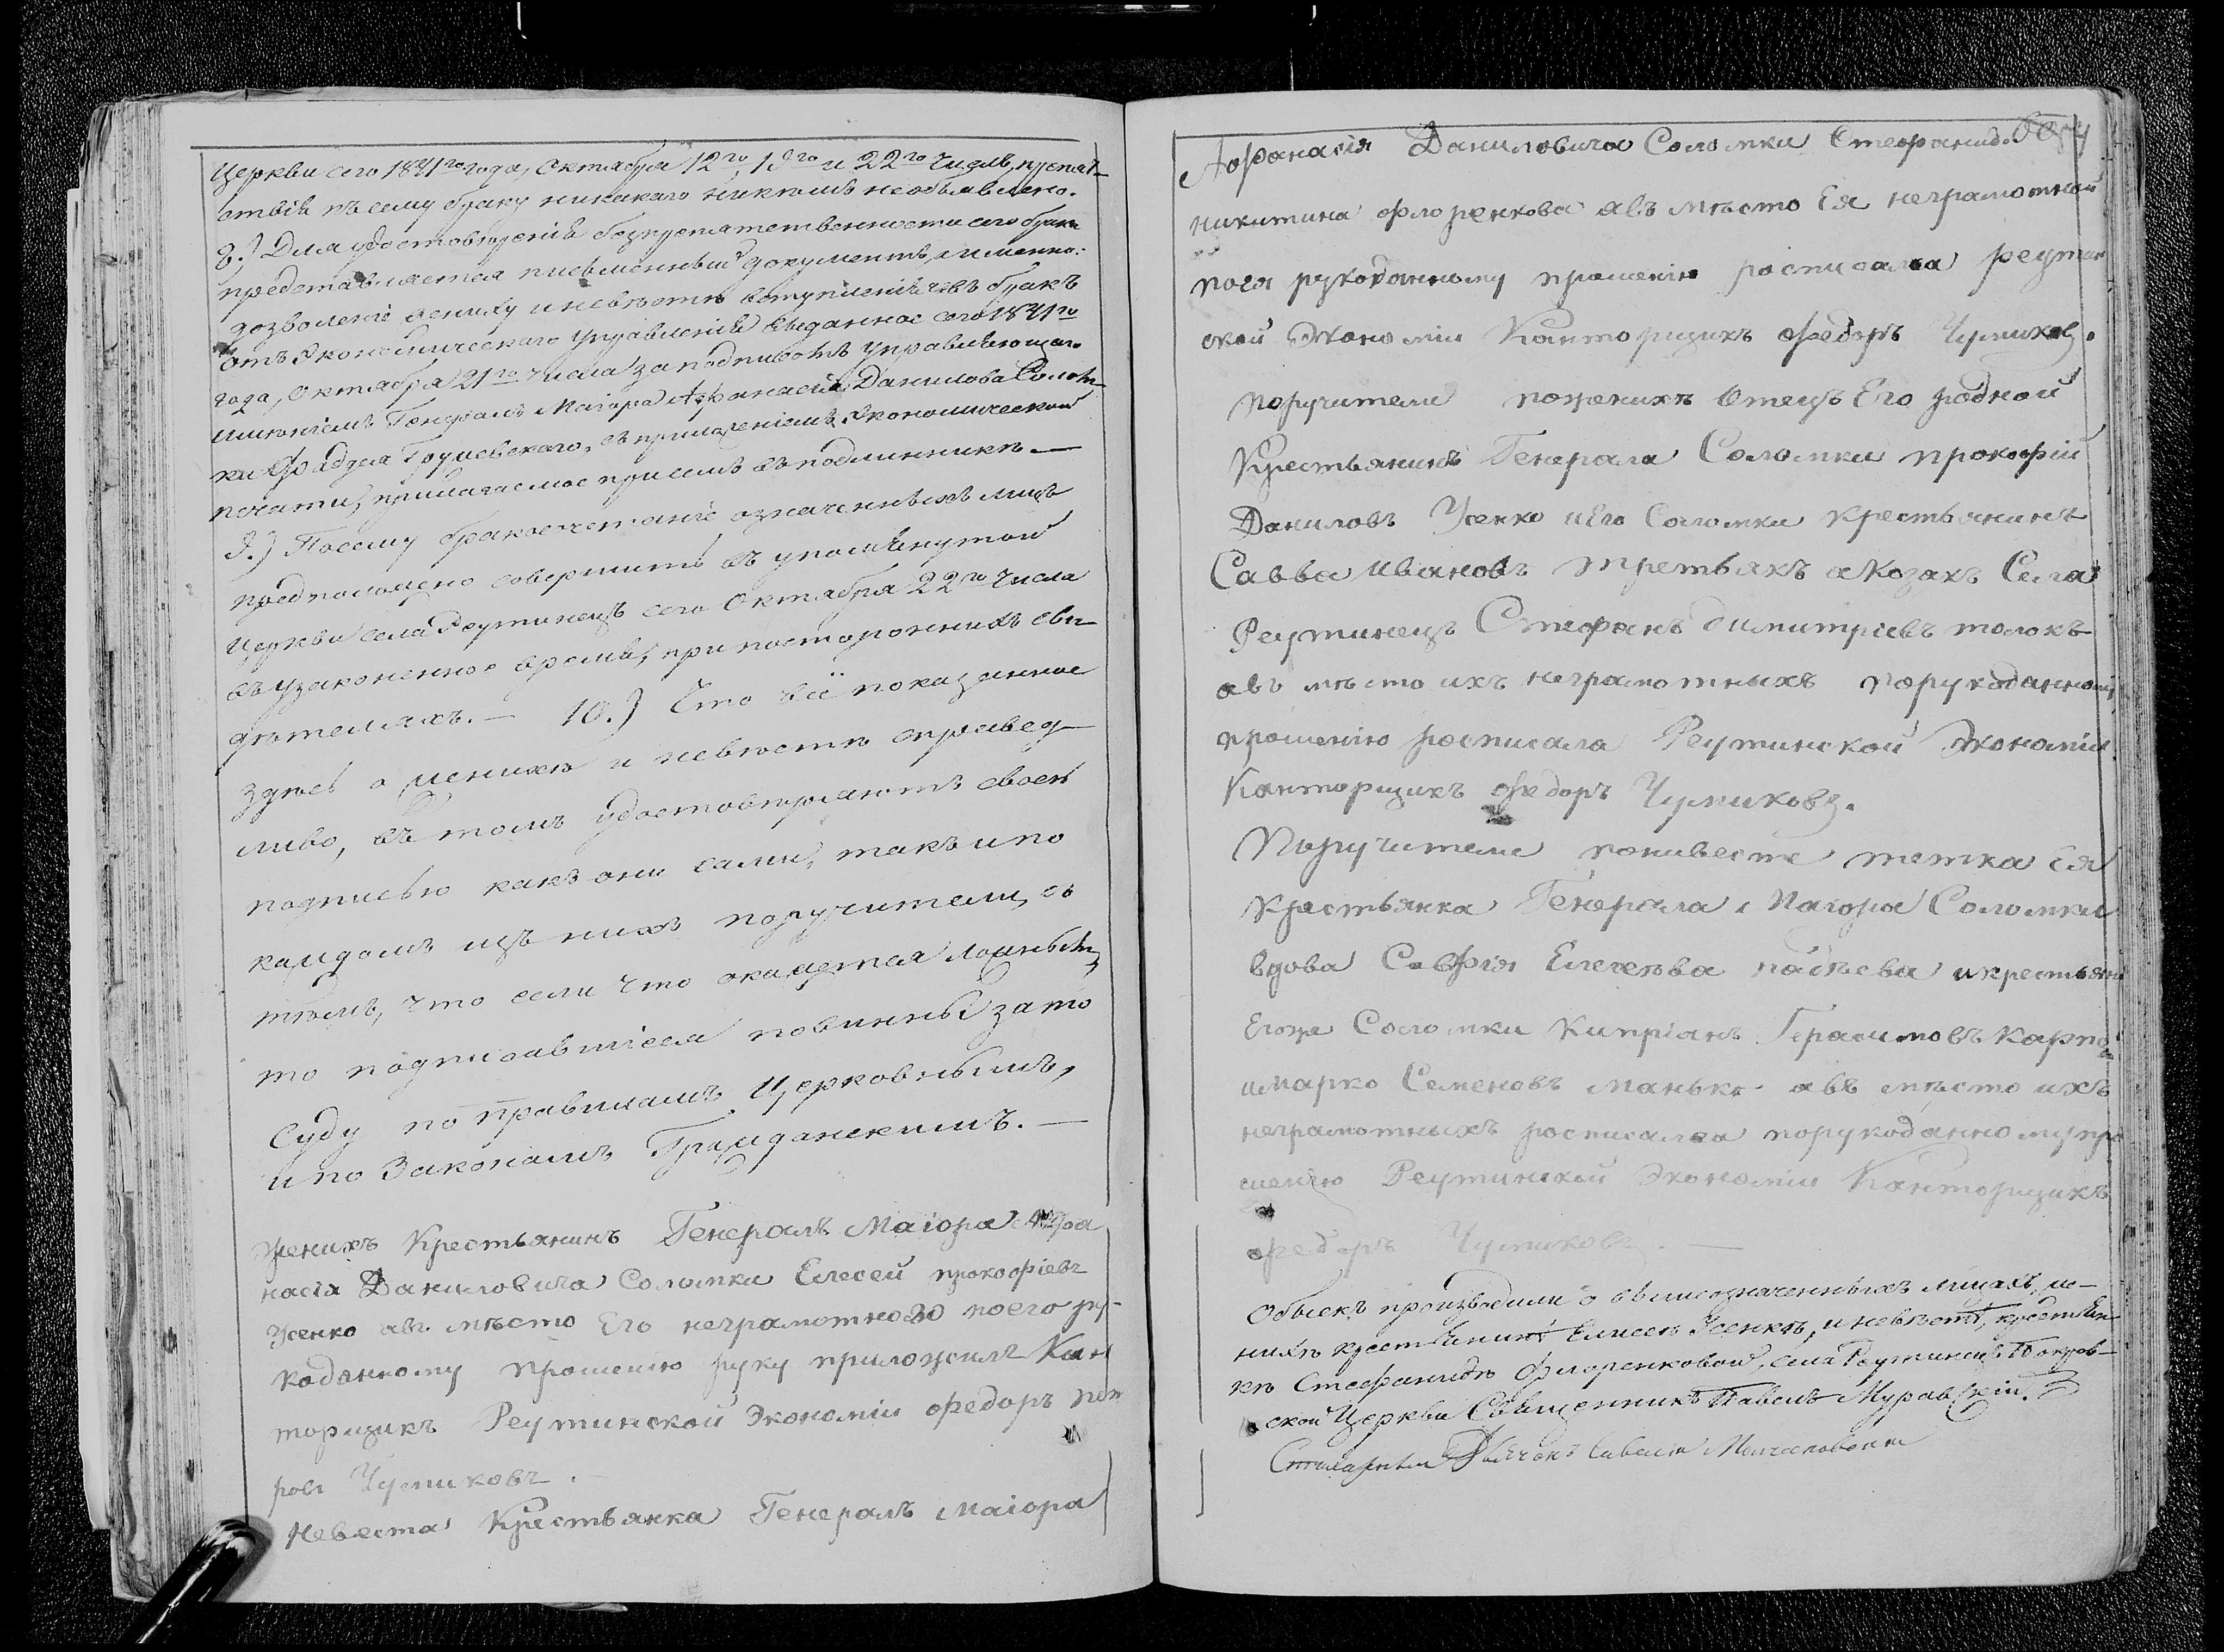 Церкви сего 1841го года, Октября 12го, 19го и 22го числъ, препят-
ствія къ сему браку никакого никѣмъ необъявлено.
8.) Для удостовѣренія безпрепятственности сего брака
представляется письменный документъ, а именно:
дозволеніе жениху и невѣстѣ вступленія въ бракъ
отъ Экономическаго Управленія выданное сего 1841го
года, Октября 21го числа за подписомъ Управляющаго
имѣніемъ Генералъ Маіора Афанасія Данилова Солом-
ки Фаддея Грушевскаго, съ приложеніемъ Экономической
печати, прилагаемое при семъ въ подлинникѣ.—
9.) Посему бракосочетаніе означенныхъ лицъ
предположено совершить въ упомянутой
Церкви села Реутинецъ сего Октября 22го числа
въ узаконенное время, при постороннихъ сви-
дѣтеляхъ.— 10.) Что всё показанное
здѣсь о женихѣ и невѣстѣ справед-
ливо, въ томъ удостовѣряютъ своею
подписью какъ они сами, такъ и по
каждомъ изъ нихъ поручители, съ
тѣмъ, что если что окажется ложнымъ,
то подписавшіеся повинны за то
Суду по правиламъ Церковнымъ,
и по Законамъ Гражданскимъ.—
Женихъ Крестьянинъ Генералъ Маіора Афа
насія Даниловича Соломки Елесей прокофіевъ
Усенко авъ мѣсто Его неграмотного поего ру-
коданному прошенію руку приложилъ Кан
торщикъ Реутинской Экономіи Федоръ пет
ровъ Чумиковъ.
Невеста Крестьянка Генералъ Маіора
Афанасія Даниловича Соломки Стефанида
никитина флоренкова авъ мѣсто Ея неграмотной
поея рукоданному прошенію росписался реутин
ской Экономіи Канторщикъ Федоръ Чумиковъ.
поручители поженихъ Отецъ Его родной
Крестьянинъ Генерала Соломки прокофій
Даниловъ Усенко иЕго Соломки крестьянинъ
Савва Ивановъ Третьякъ аКозакъ Села
Реутинецъ Стефанъ димитріевъ толокъ
авъ мѣсто ихъ неграмотныхъ порукоданному
прошенію росписалса Реутинской Экономіи
Канторщикъ Федоръ Чумиковъ.
Поручители понивесте тетка Ея
Крестьянка Генерала Маіора Соломки
вдова Софія Елесеева и крестьяни
Егоже Соломки Кипріянъ Герасимовъ Карпо
имарко Семеновъ манько авъ мѣсто ихъ
неграмотныхъ росписалса порукоданному про
шенію Реутинской Экономіи Канторщикъ
Федоръ Чумиковъ.—
Обыскъ производили о вышеозначенныхъ лицахъ, же-
нихѣ крестьянинѣ Елисеѣ Усенкѣ, и невѣстѣ, крестьян-
кѣ Стефанидѣ Флоренковой, села Реутинецъ Покров-
ской Церкви Священникъ Павелъ Муравскій.
Дьячокъ